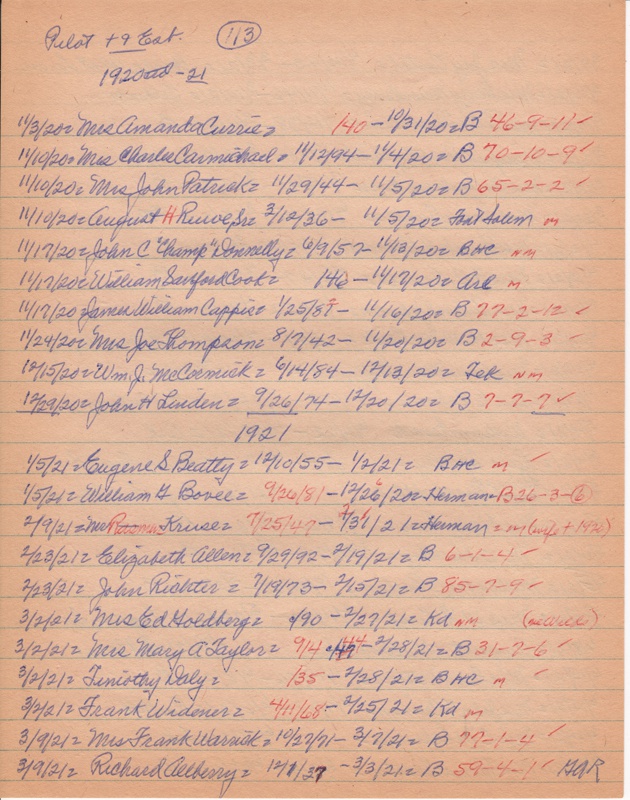 Pilot + 9 Eat. 113
1920 - 21
11/3/20 = Mrs Amanda Currie = /40 - 10/31/20 = B 46-9-11 ✓
11/10/20 = Mrs Charles Carmichael = 11/12/94 - 11/4/20 = B 70-10-9 ✓
11/10/20 = Mrs John Patrick = 11/29/44 - 11/5/20 = B 65-2-2 ✓
11/10/20 = August H Sr = 2/12/36 - 11/5/20 = Salem m
11/17/20 = John C "Champ" Donnelly = 6/9/57 - 11/13/20 = BHC nm
11/17/20 = William Sanford Cook = - 11/17/20 = m
11/17/20 = James William Cappis = 1/25/87 - 11/16/20 = B 77-2-12 ✓
11/24/20 = Mrs Joe Thompson = 8/7/42 - 11/20/20 = B 2-9-3 ✓
12/15/20 = Wm. J. McCormick = 6/14/84 - 12/13/20 = Tek nm
12/29/20 = John H Linden = 9/26/74 - 12/20/20 = B 7-7-7 ✓
1921
1/5/21 = Eugene S Beatty = 12/10/55 - 1/2/21 = BHC m ✓
1/5/21 = William G Bovee = 9/26/81 - 12/26/20 = Herman = B 26-3-6
2/9/21 = Kruse = 7/25/47 - /21 = Herman = m (wife + 1920)
2/23/21 = Elizabeth Allen = 9/29/92 - 2/19/21 = B 6-1-4 ✓
2/23/21 = John Richter = 7/19/73 - 2/15/21 = B 85-7-9 ✓
3/2/21 = Mrs Ed Goldberg = /90 - 2/27/21 = Kd nm
3/2/21 = Mrs Mary A Taylor = 9/4 44 - 2/28/21 = B 31-7-6 ✓
3/2/21 = Timiothy Daly = /35 - 2/28/21 = BHC m ✓
3/2/21 = Frank Widener = 4/11/68 - 2/25/21 = Kd m
3/9/21 = Mrs Frank Warnick = 10/27/71 - 3/7/21 = B 77-1-4 ✓
3/9/21 = Richard Allberry = 12/1/37 - 3/3/21 = B 59-4-1 ✓ GAR